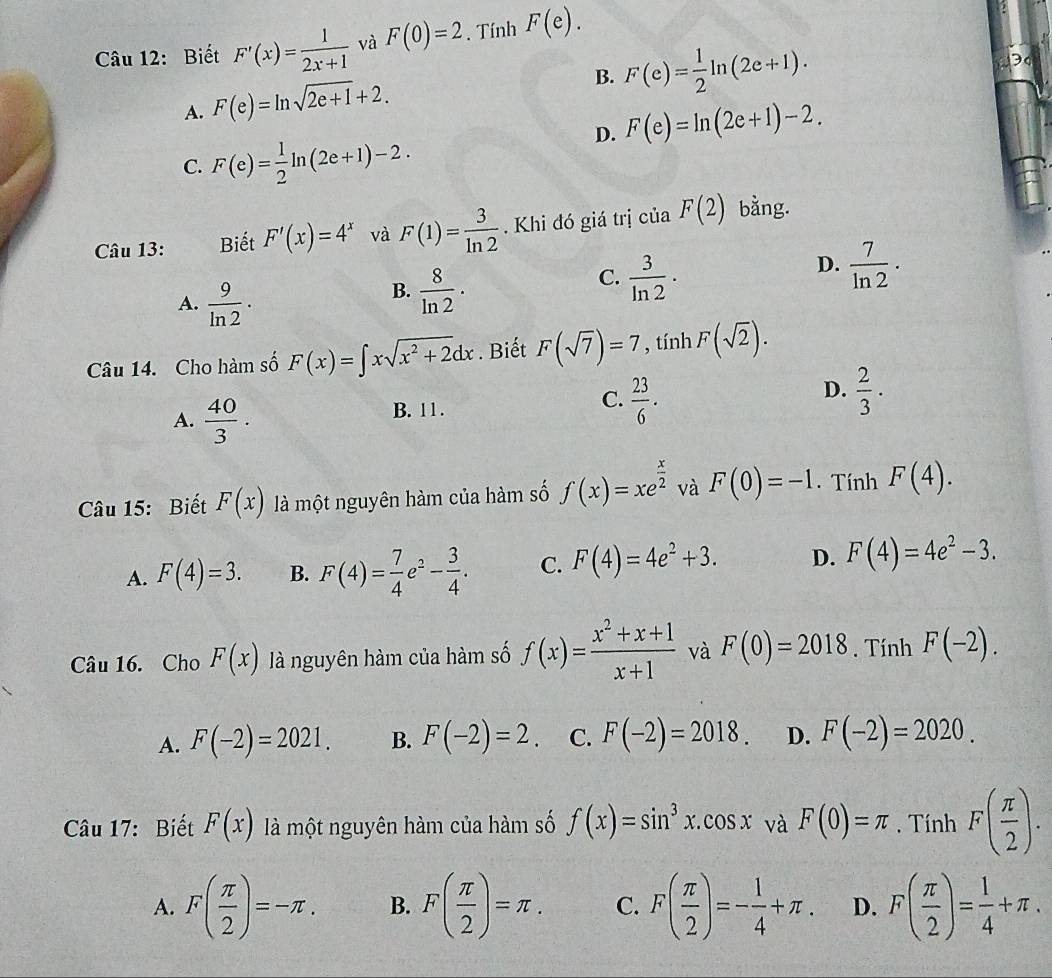 Câu 12: Biết F'(x) = \frac{1}{2x+1} và F(0) = 2. Tính F(e).
A. F(e) = ln\sqrt{2e+1} + 2. B. F(e) = \frac{1}{2}ln(2e+1).
C. F(e) = \frac{1}{2}ln(2e+1) − 2. D. F(e) = ln(2e+1) − 2.
Câu 13: Biết F'(x) = 4^x và F(1) = \frac{3}{ln 2}. Khi đó giá trị của F(2) bằng.
A. \frac{9}{ln 2}. B. \frac{8}{ln 2}. C. \frac{3}{ln 2}. D. \frac{7}{ln 2}.
Câu 14. Cho hàm số F(x) = ∫x\sqrt{x^2+2}dx. Biết F(\sqrt{7}) = 7, tính F(\sqrt{2}).
A. \frac{40}{3}. B. 11. C. \frac{23}{6}. D. \frac{2}{3}.
Câu 15: Biết F(x) là một nguyên hàm của hàm số f(x) = xe^{\frac{x}{2}} và F(0) = −1. Tính F(4).
A. F(4) = 3. B. F(4) = \frac{7}{4}e^2 − \frac{3}{4}. C. F(4) = 4e^2 + 3. D. F(4) = 4e^2 − 3.
Câu 16. Cho F(x) là nguyên hàm của hàm số f(x) = \frac{x^2+x+1}{x+1} và F(0) = 2018. Tính F(−2).
A. F(−2) = 2021. B. F(−2) = 2. C. F(−2) = 2018. D. F(−2) = 2020.
Câu 17: Biết F(x) là một nguyên hàm của hàm số f(x) = sin^3 x.cos x và F(0) = π. Tính F(\frac{π}{2}).
A. F(\frac{π}{2}) = −π. B. F(\frac{π}{2}) = π. C. F(\frac{π}{2}) = −\frac{1}{4} + π. D. F(\frac{π}{2}) = \frac{1}{4} + π.